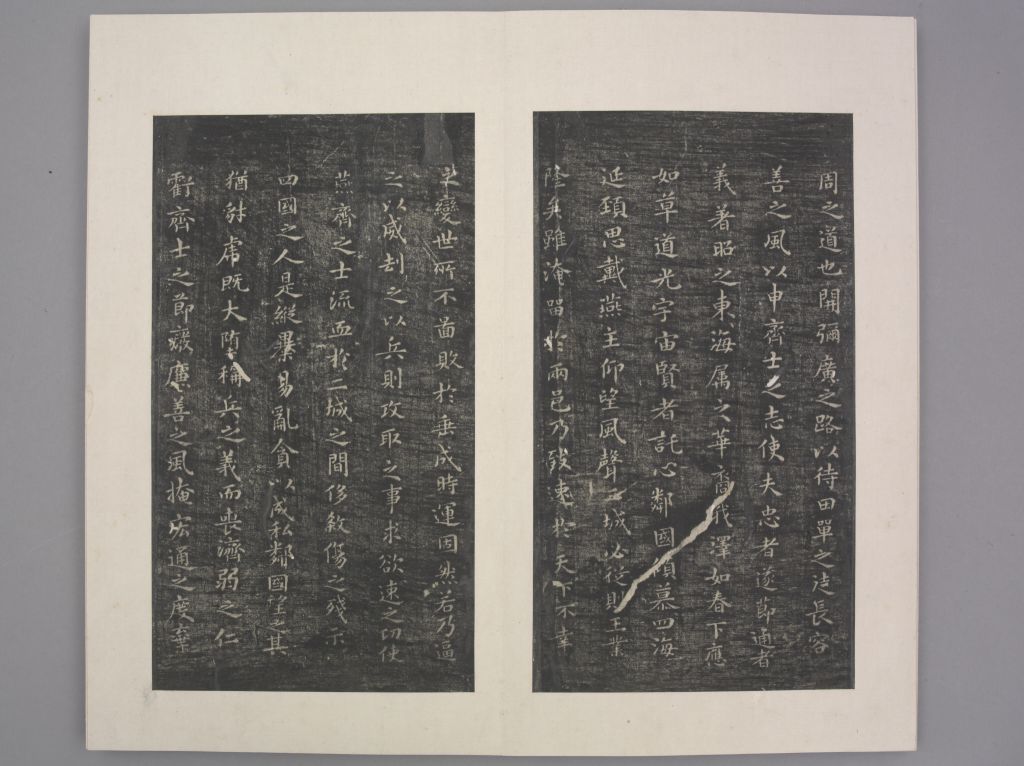 周之道也開彌廣之路以待田單之徒長容
善之風以申齊士之志使夫忠者遂節通者
義著昭之東海属之華裔我澤如春下應
如草道光宇宙賢者託心鄰國傾慕四海
延頸思戴燕主仰望風聲二城必從則王業
隆矣雖淹留於兩邑乃致速於天下不幸
變世所不啚敗於垂成時運固然若乃逼
之以威刧之以兵則攻取之事求欲速之功使
燕齊之士流血於二城之間侈煞傷之殘示
四國之人是縱暴易亂貪以成私鄰國望之其
猶豺虎既大墮稱兵之義而喪濟弱之仁
虧齊士之節癈廉善之風掩宏通之度棄